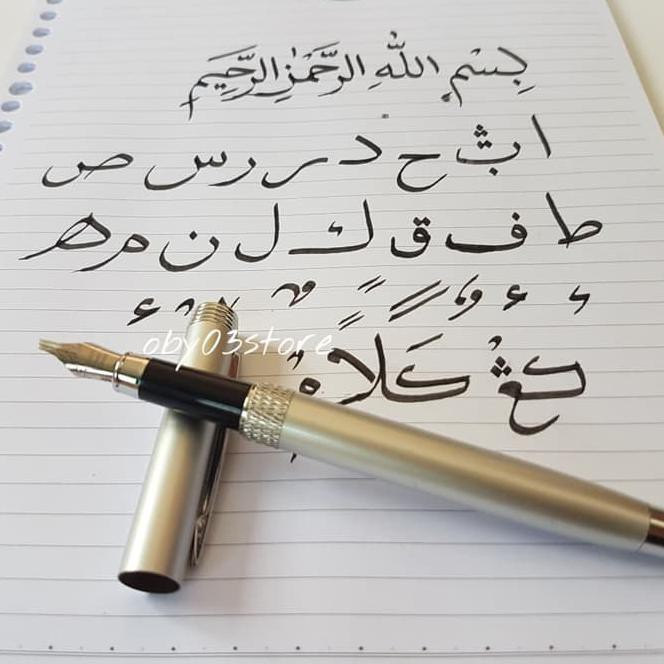 بِسْمِ اللّٰهِ الرَّحْمٰنِ الرَّحِيْمِ
ا ث ح د ر ر س ص
ط ف ق ك ل ن م ه
oby03store